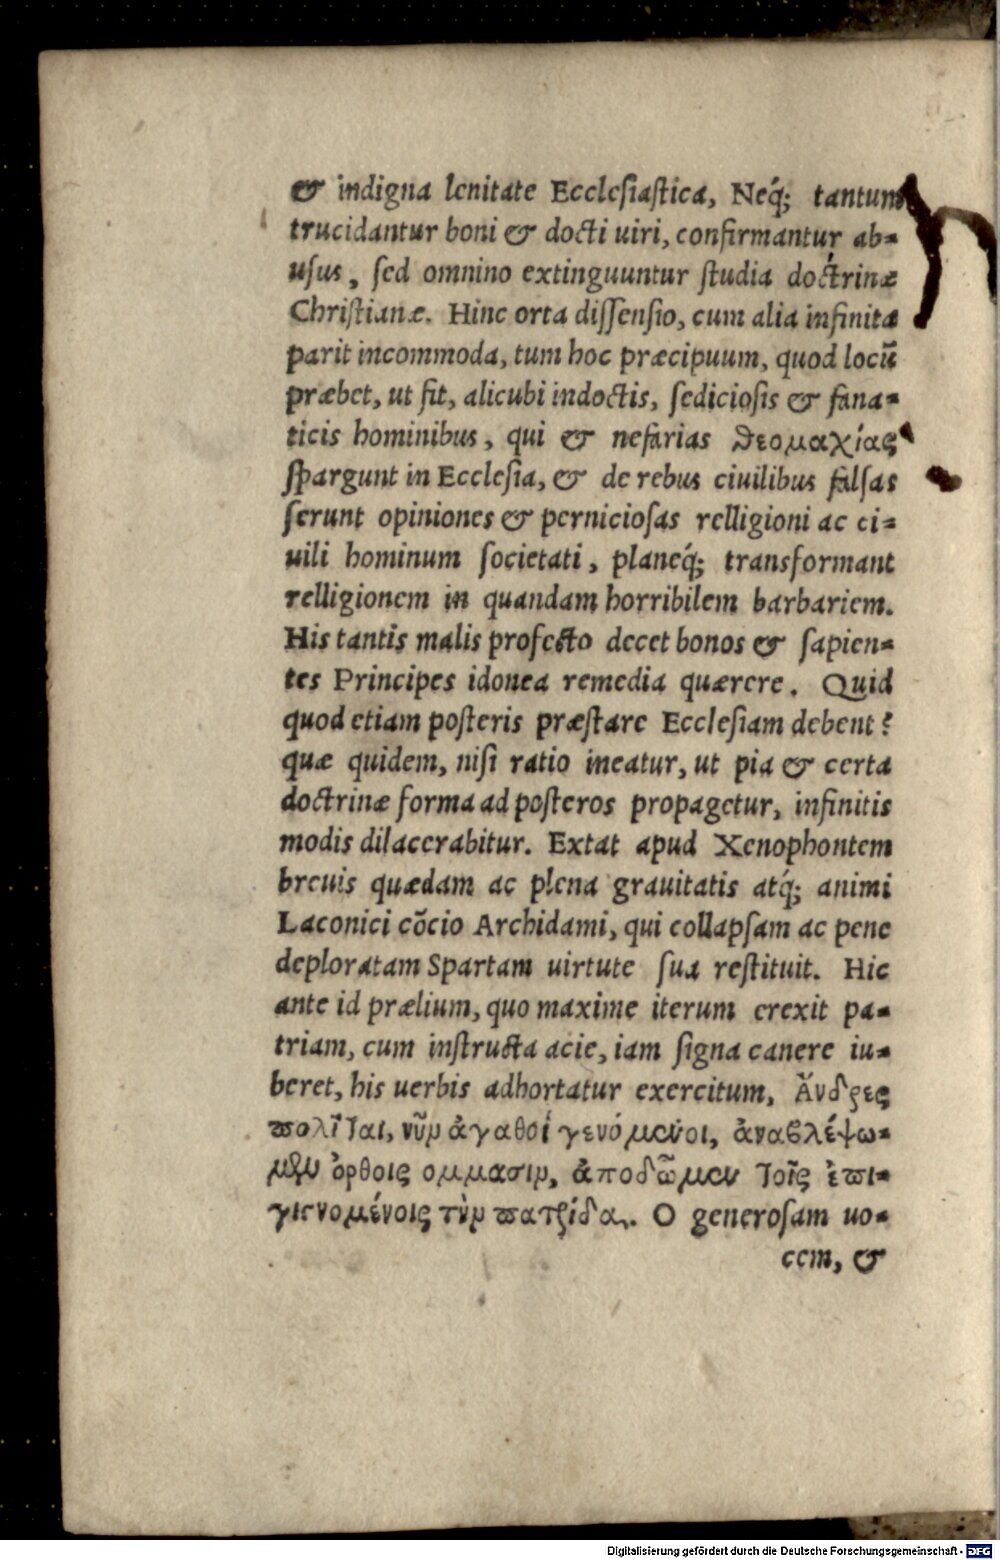 & indigna lenitate Ecclesiastica, Neq́; tantum
trucidantur boni & docti uiri, confirmantur ab=
usus, sed omnino extinguuntur studia doctrinæ
Christianæ. Hinc orta dissensio, cum alia infinita
parit incommoda, tum hoc præcipuum, quod locũ
præbet, ut fit, alicubi indoctis, sediciosis & fana=
ticis hominibus, qui & nefarias θεομαχίας
spargunt in Ecclesia, & de rebus ciuilibus falsas
serunt opiniones & perniciosas relligioni ac ci=
uili hominum societati, planeq́; transformant
relligionem in quandam horribilem barbariem.
His tantis malis profecto decet bonos & sapien=
tes Principes idonea remedia quærere. Quid
quod etiam posteris præstare Ecclesiam debent?
quæ quidem, nisi ratio ineatur, ut pia & certa
doctrinæ forma ad posteros propagetur, infinitis
modis dilacerabitur. Extat apud Xenophontem
breuis quædam ac plena grauitatis atq́; animi
Laconici cõcio Archidami, qui collapsam ac pene
deploratam Spartam uirtute sua restituit. Hic
ante id prælium, quo maxime iterum erexit pa=
triam, cum instructa acie, iam signa canere iu=
beret, his uerbis adhortatur exercitum, Ἄνδρες
πολῖται, νῦν ἀγαθοὶ γενόμενοι, ἀναβλέψω=
μεν ὀρθοις ομμασιν, ἀποδῶμεν τοῖς ἐπι=
γιενομένοις τὴν πατρίδα. O generosam uo=
cem, &
Digitalisierung gefördert durch die Deutsche Forschungsgemeinschaft - DFG